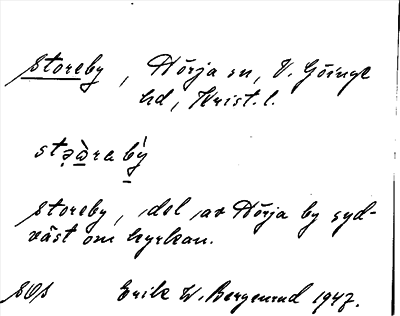 Storeby, Hörja sn, V. Göinge
hd, Krist. l.
Storeby, del av Hörja by syd-
väst om kyrkan.
SOS Erik W. Bergenrud 1947.